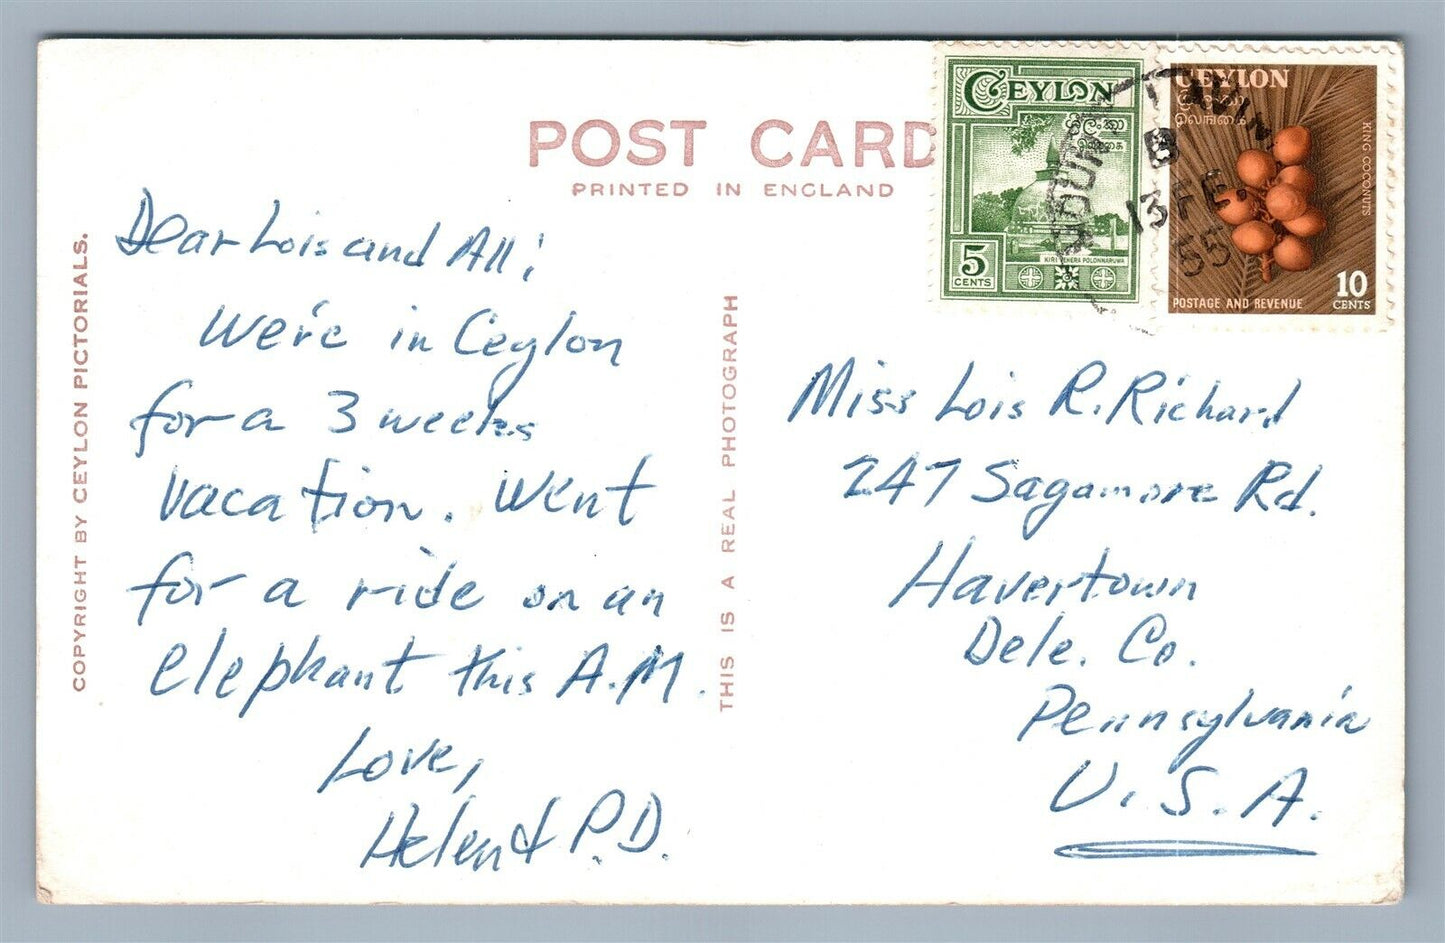 POST CARD
PRINTED IN ENGLAND
COPYRIGHT BY CEYLON PICTORIALS.
THIS IS A REAL PHOTOGRAPH
Dear Lois and All;
We're in Ceylon
for a 3 weeks
vacation. Went
for a ride on an
elephant this A.M.
Love,
Helen & P.D.
CEYLON
KIRI VEHERA POLONNARUWA
5
CENTS
CEYLON
ශ්‍රී ලංකා
இலங்கை
KING COCONUTS
10
POSTAGE AND REVENUE CENTS
B
13 FE.
55
Miss Lois R. Richard
247 Sagamore Rd.
Havertown
Dele. Co.
Pennsylvania
U.S.A.